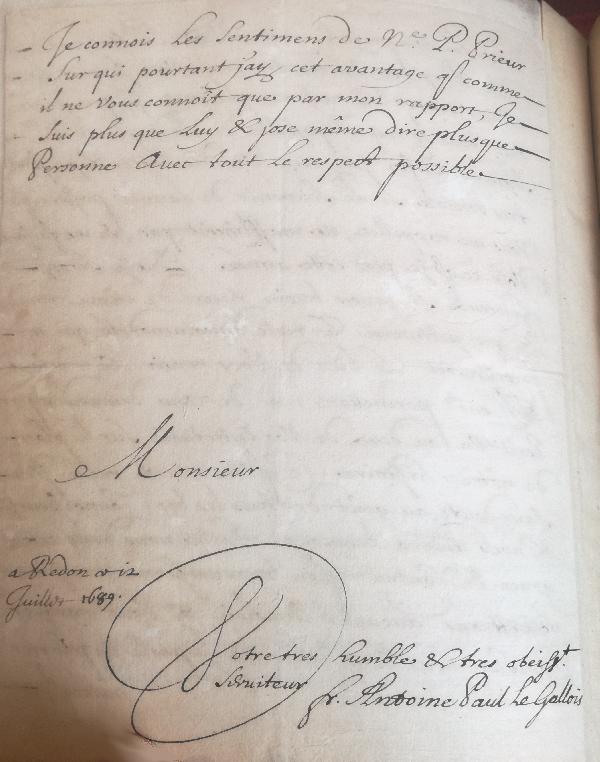 Je connois les sentimens de N.e P. Prieur
sur qui pourtant j'ay cet avantage q comme
il ne vous connoît que par mon rapport, Je
suis plus que Luy & j'ose même dire plusque
Personne Avec tout le respect possible
Monsieur
a Redon ce 12
Juillet 1689.
Votre tres humble & tres obeisst.
serviteur
fr. Antoine Paul Le Gallois